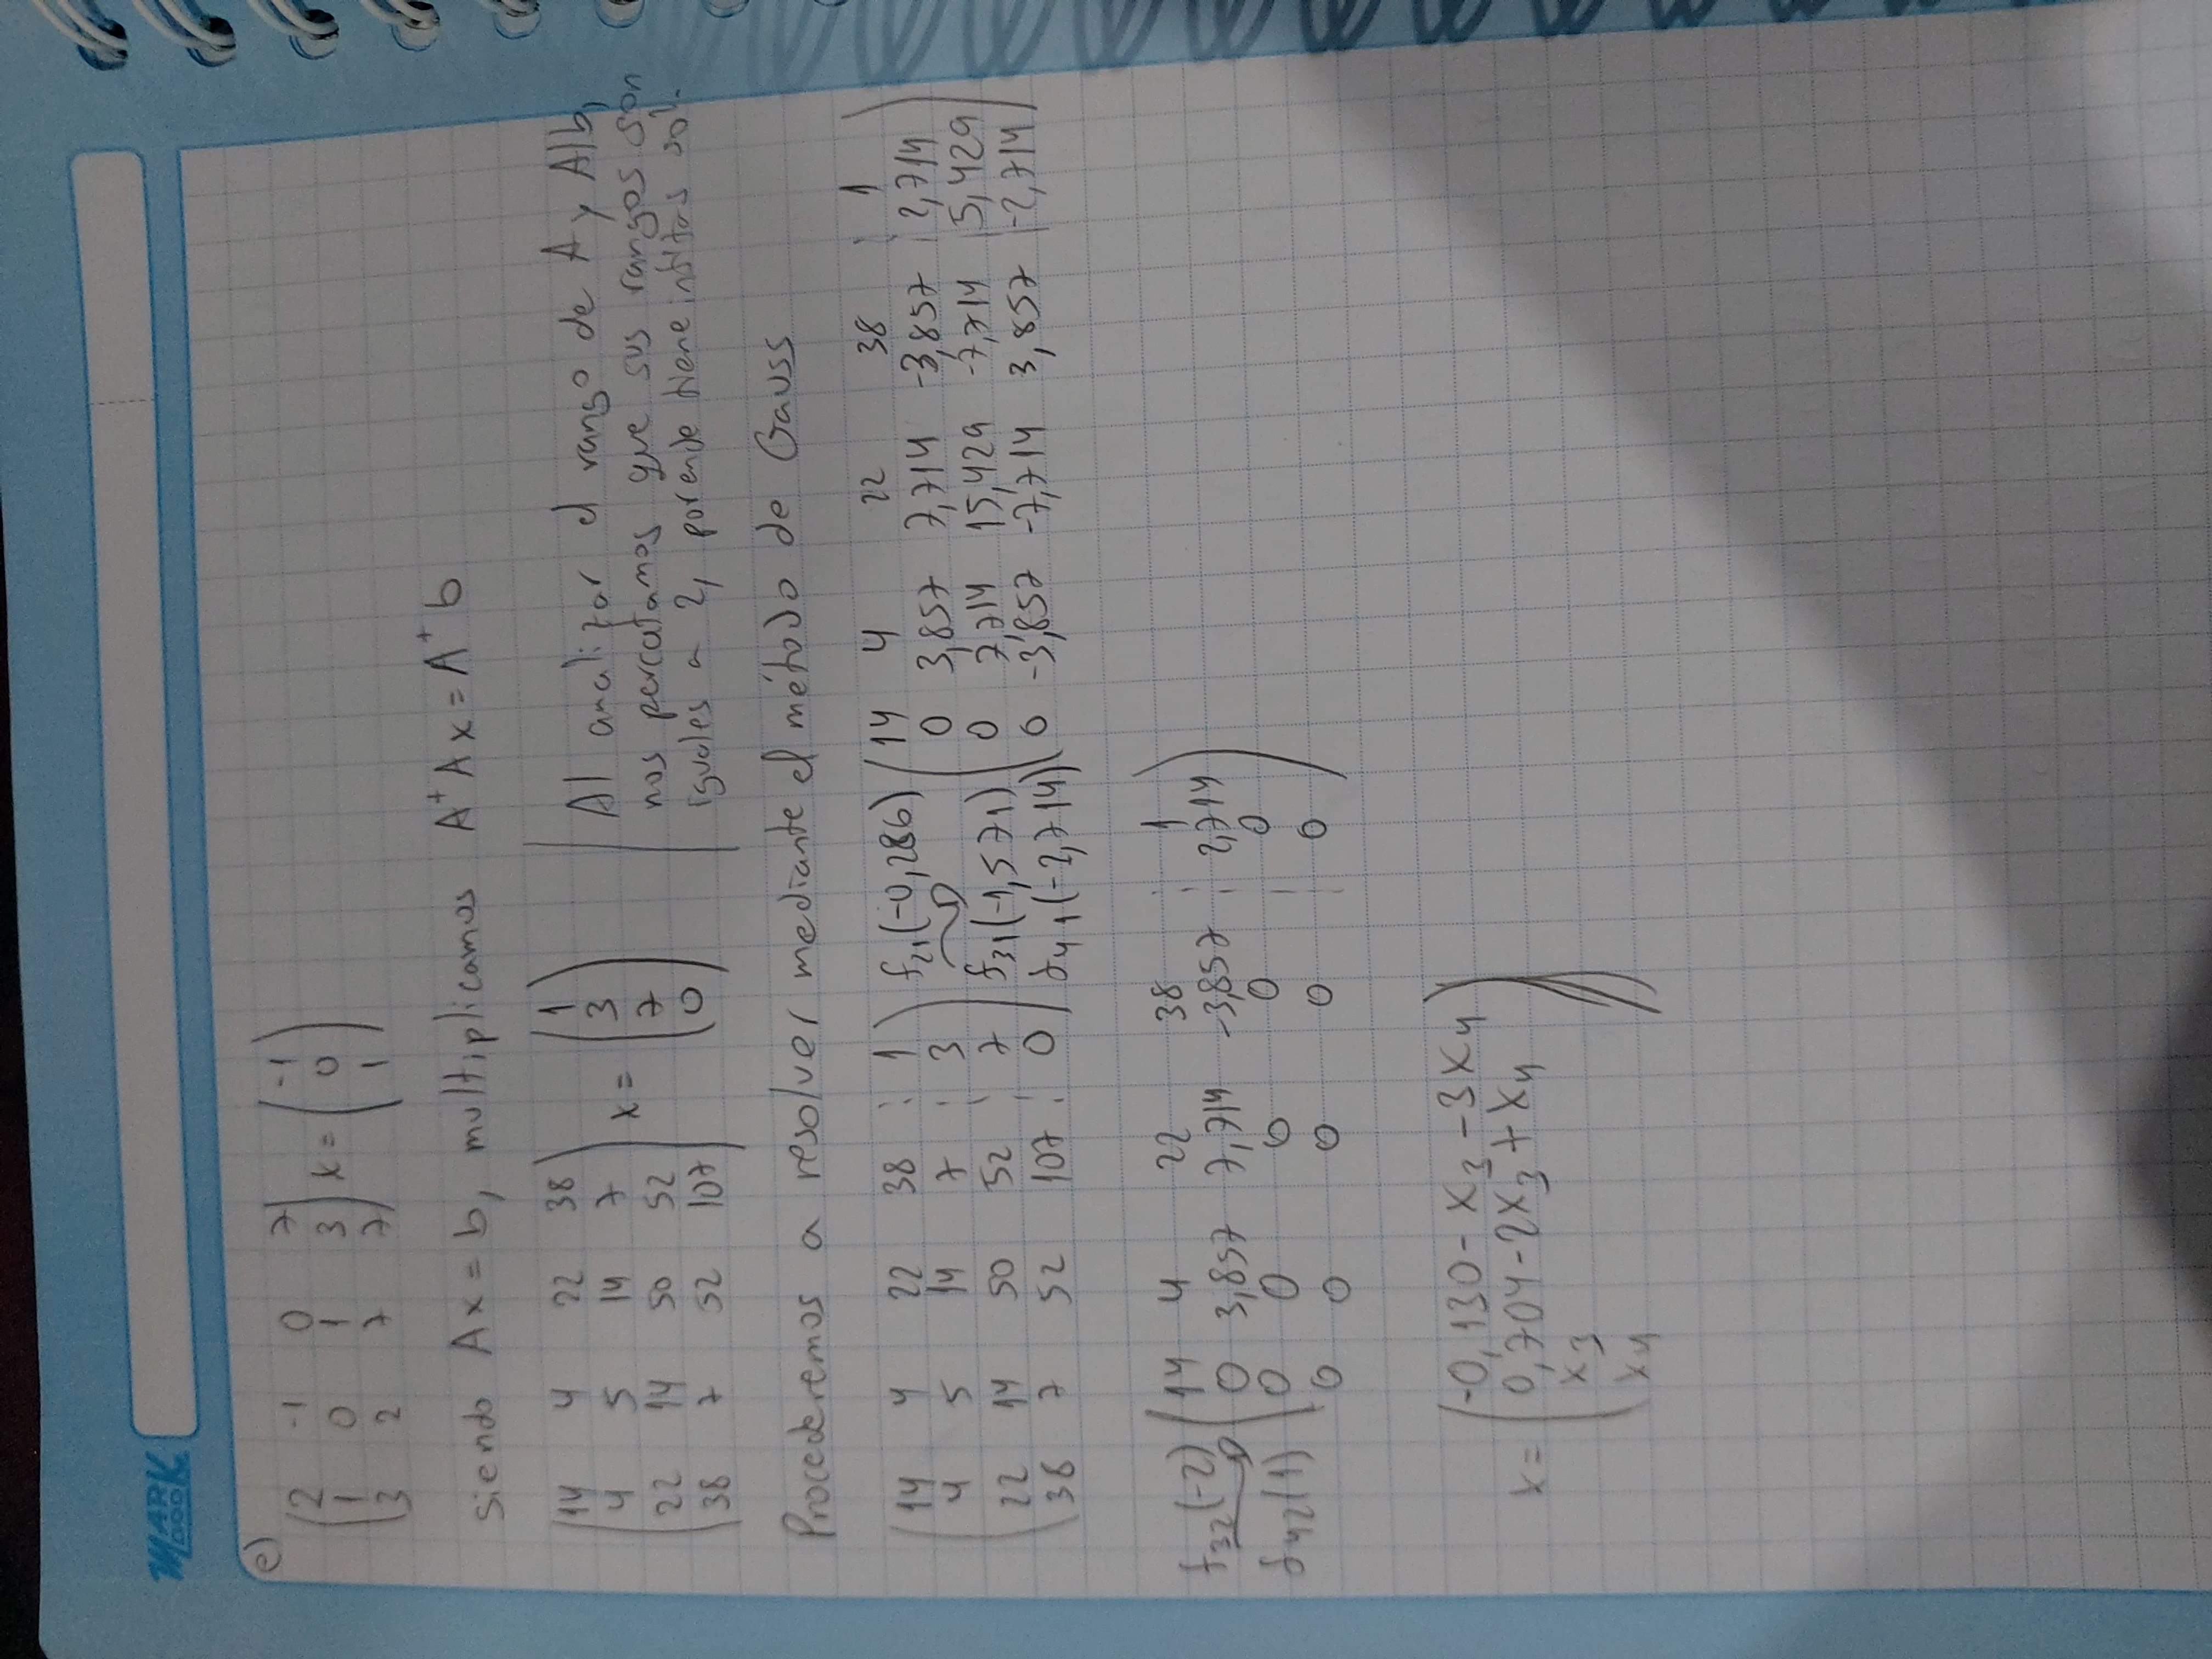 MARK
e)
(2 -1 0 7
1 0 1 3
3 2 7 7) x = (-1
0
1)
siendo Ax = b, multiplicamos A⁺Ax = A⁺b
(14 4 22 38
4 5 14 7
22 14 50 52
38 7 52 107) x = (1
3
7
0)
Al analizar el rango de A y A|b,
nos percatamos que sus rangos son
iguales a 2, por ende tiene
Procederemos a resolver mediante el método de Gauss
(14 4 22 38 : 1
4 5 14 7 : 3
22 14 50 52 : 7
38 7 52 107 : 0)
f₂₁(-0,286)
f₃₁(-1,571)
f₄₁(-2,714)
(14 4 22 38 : 1
0 3,857 7,714 -3,857 : 2,714
0 7,714 15,429 -7,714 5,429
0 -3,857 -7,714 3,857 -2,714)
f₃₂(-2)
f₄₂(1)
(14 4 22 38 : 1
0 3,857 7,714 -3,857 : 2,714
0 0 0 0 0
0 0 0 0 0)
x = (-0,130 - x₃ - 3x₄
0,704 - 2x₃ + x₄
x₃
x₄)